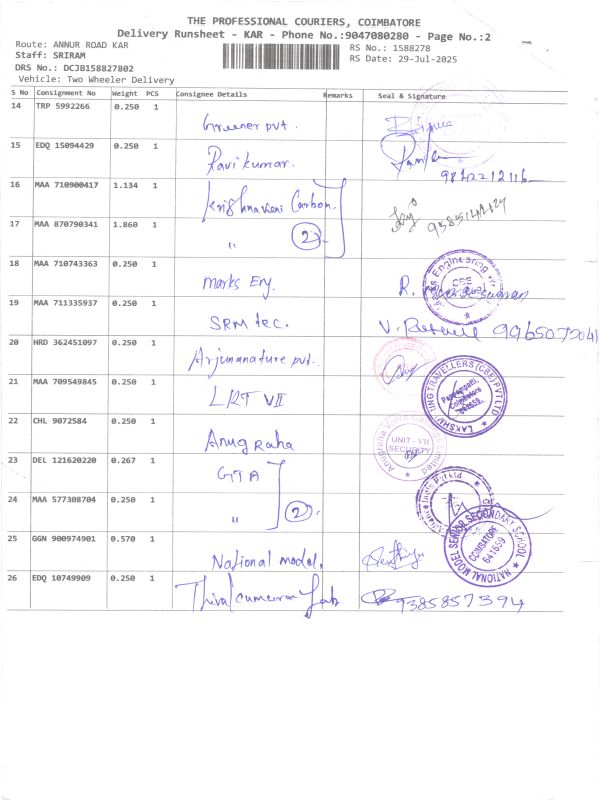 THE PROFESSIONAL COURIERS, COIMBATORE
Delivery Runsheet - KAR - Phone No.:9047080280 - Page No.:2
Route: ANNUR ROAD KAR
RS No.: 1588278
Staff: SRIRAM
RS Date: 29-Jul-2025
DRS No.: DCJB158827802
Vehicle: Two Wheeler Delivery
S No Consignment No Weight PCS Consignee Details Remarks Seal & Signature
14 TRP 5992266 0.250 1
Greener pvt.
15 EDQ 15094429 0.250 1
Ravikumar.
9842212116
16 MAA 710900417 1.134 1
Krishnaveni Carbon.
17 MAA 870790341 1.860 1
" 2
18 MAA 710743363 0.250 1
Marks Eng.
19 MAA 711335937 0.250 1
SRM tec.
9965072041
20 HRD 362451097 0.250 1
Arjunanature pvt.
21 MAA 709549845 0.250 1
LRT VII
22 CHL 9072584 0.250 1
Anugraha
UNIT - VII
SECURITY
23 DEL 121620220 0.267 1
GTA
24 MAA 577308704 0.250 1
" 2
25 GGN 900974901 0.570 1
National model.
NATIONAL MODEL SENIOR SECONDARY SCHOOL
COIMBATORE
641659
26 EDQ 10749909 0.250 1
9385857394